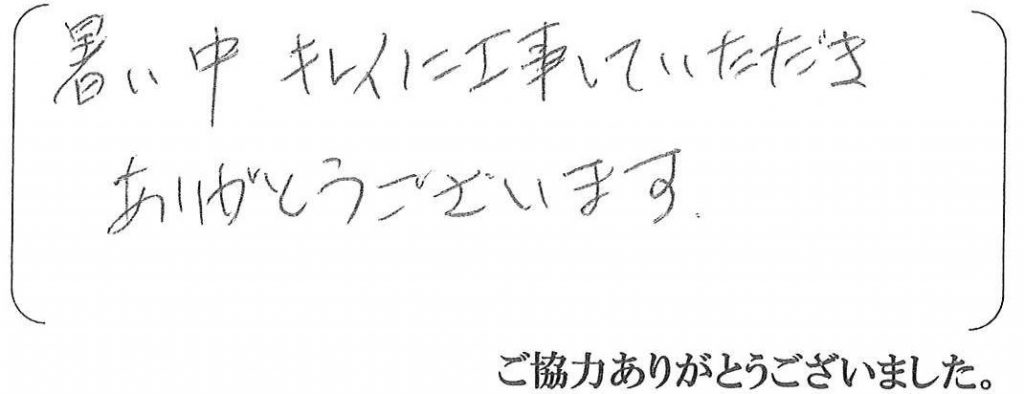 暑い中 キレイに工事していただき
ありがとうございます.
ご協力ありがとうございました。